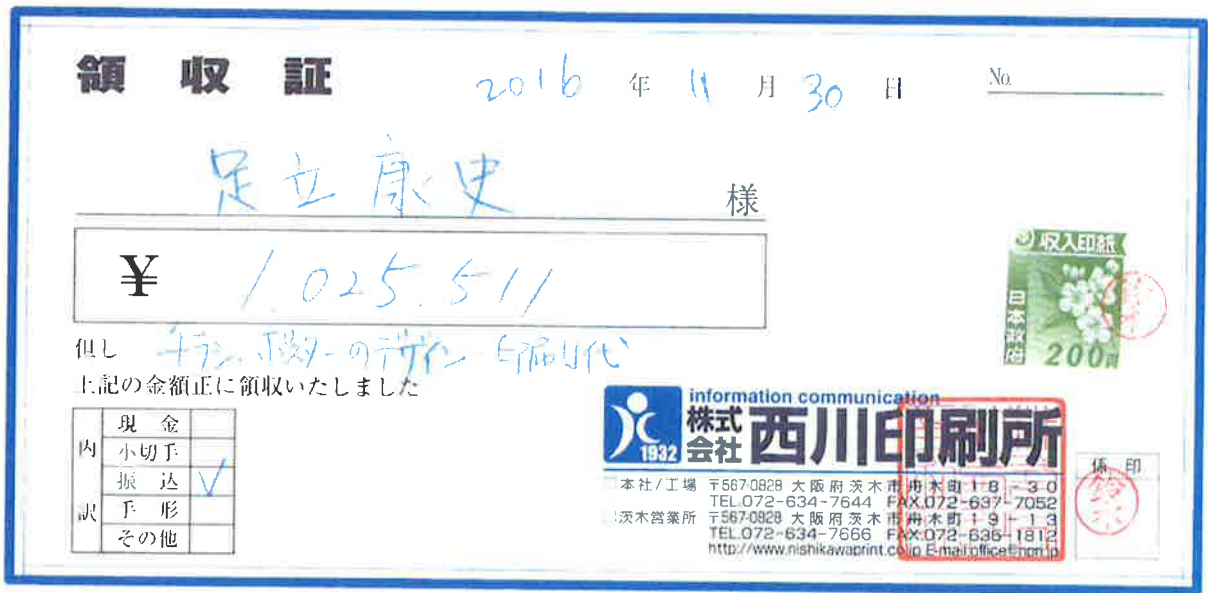 領収証 2016年11月30日 No.
足立康史 様
¥ 1.025.511
但し チラシ、ポスターのデザイン 印刷代
上記の金額正に領収いたしました
収入印紙
日本政府
200円
内訳
現金
小切手
振込 ✓
手形
その他
information communication
1932 株式会社 西川印刷所
本社/工場 〒567-0828 大阪府茨木市舟木町18-30
TEL.072-634-7644 FAX.072-637-7052
茨木営業所 〒567-0828 大阪府茨木市舟木町19-13
TEL.072-634-7666 FAX.072-635-1812
http://www.nishikawaprint.co.jp E-mail:office@npn.jp
係印